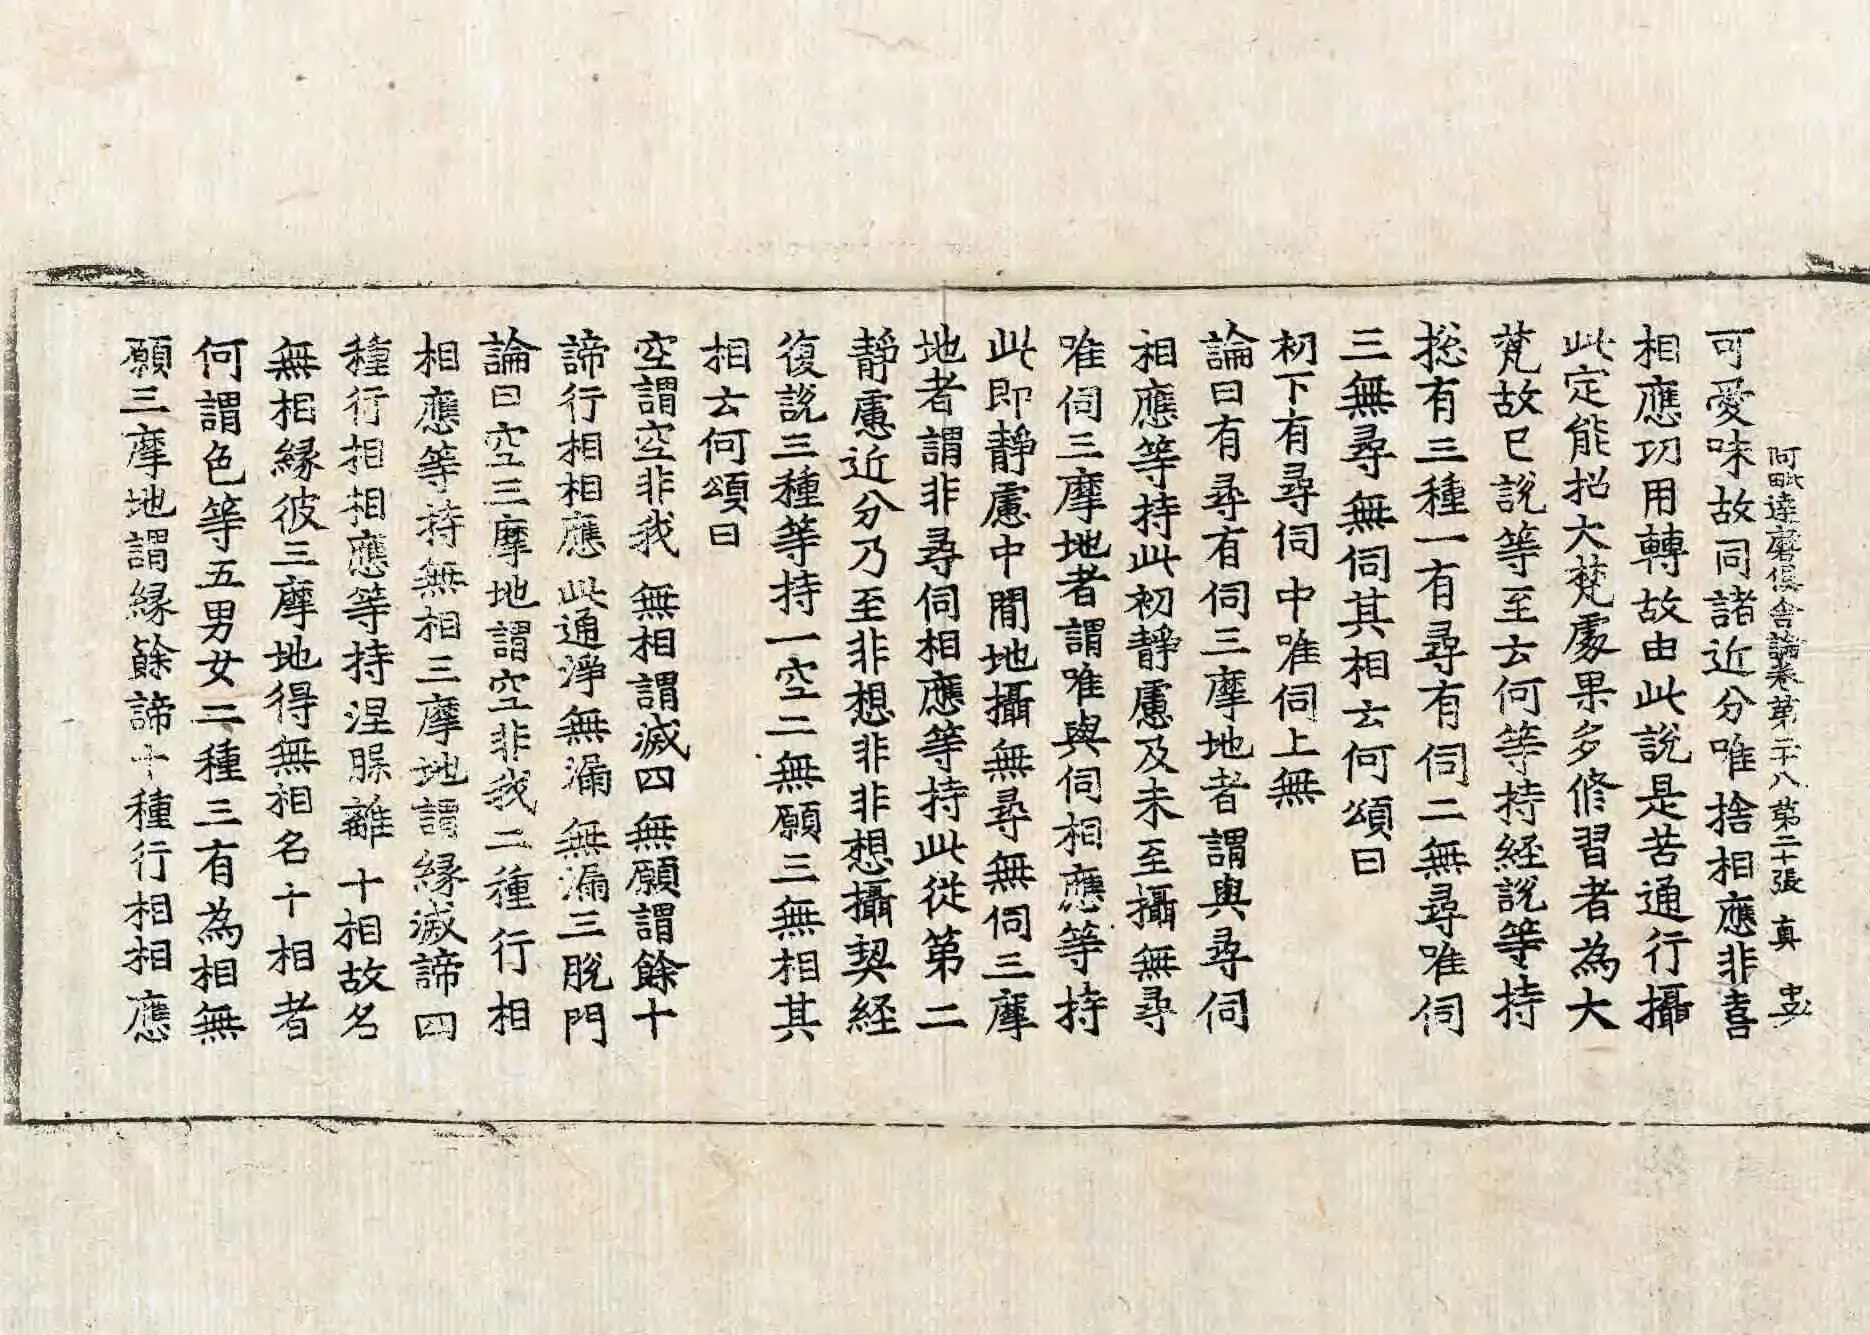 阿毗達磨俱舍論卷第二十八 第二十張 真
可愛味故同諸近分唯捨相應非喜
相應功用轉故由此說是苦通行攝
此定能招大梵處果多修習者為大
梵故已說等至云何等持經說等持
捴有三種一有尋有伺二無尋唯伺
三無尋無伺其相云何頌曰
初下有尋伺 中唯伺上無
論曰有尋有伺三摩地者謂與尋伺
相應等持此初靜慮及未至攝無尋
唯伺三摩地者謂唯與伺相應等持
此即靜慮中間地攝無尋無伺三摩
地者謂非尋伺相應等持此從第二
靜慮近分乃至非想非非想攝契経
復說三種等持一空二無願三無相其
相云何頌曰
空謂空非我 無相謂滅四 無願謂餘十
諦行相相應 此通淨無漏 無漏三脫門
論曰空三摩地謂空非我二種行相
相應等持無相三摩地謂緣滅諦四
種行相相應等持涅槃離十相故名
無相緣彼三摩地得無相名十相者
何謂色等五男女二種三有為相無
願三摩地謂緣餘諦十種行相相應